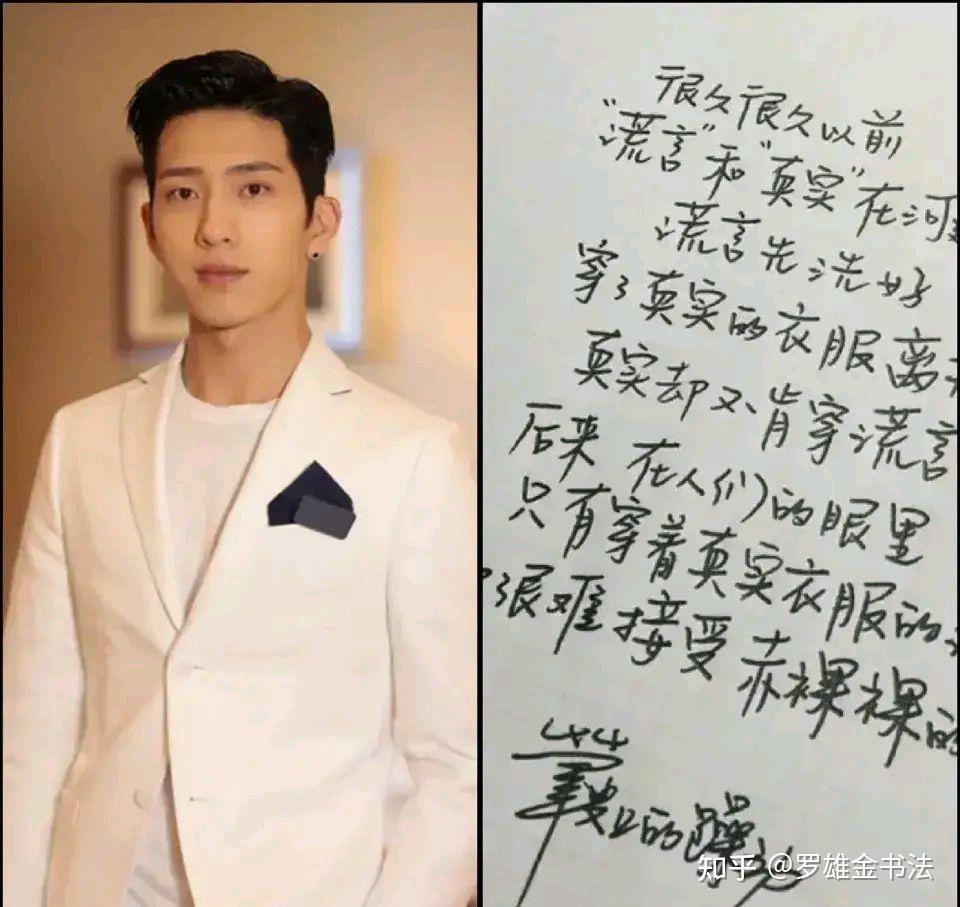 很久很久以前
"谎言"和"真实"在河
谎言先洗好
穿了真实的衣服离
真实却不肯穿谎言
后来 在人们的眼里
只有穿着真实衣服的
很难接受赤裸裸的
的
知乎 @罗雄金书法